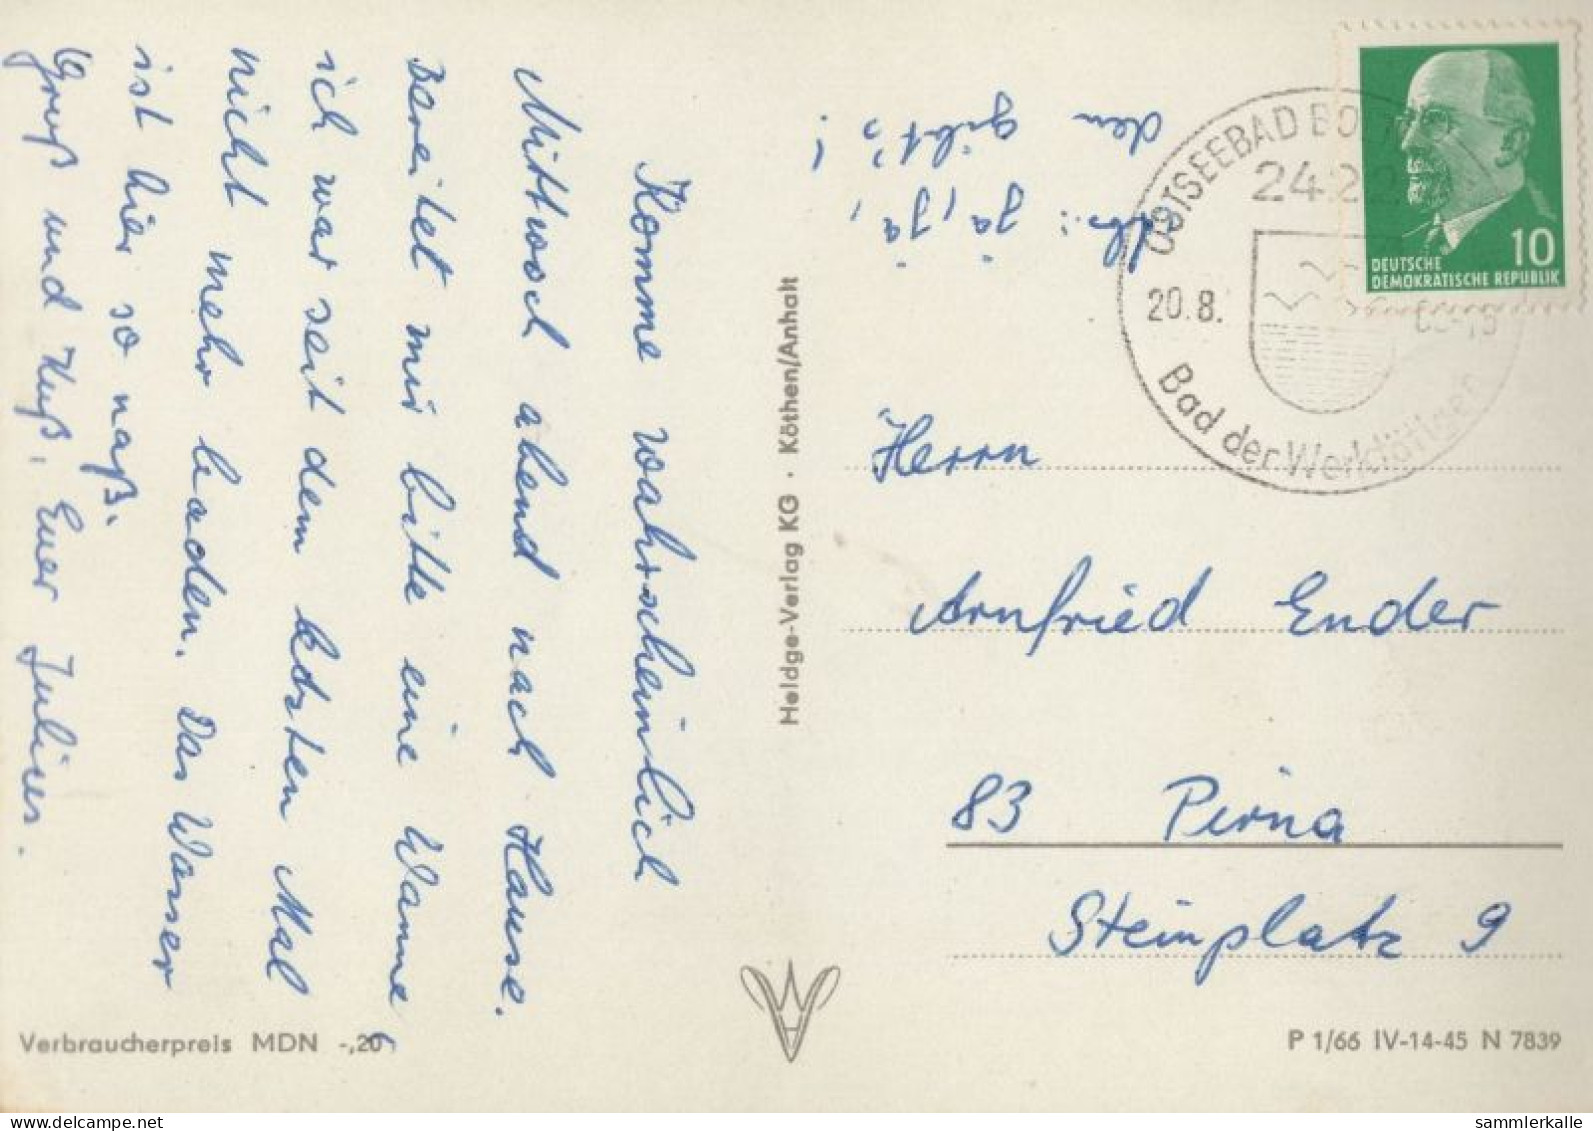 Komme wahrscheinlich
Mittwoch abend nach Hause.
Bereitet mir bitte eine Wanne,
ich war seit dem letzten Mal
nicht mehr baden. Das Wasser
ist hier so naß.
Gruß und Kuß, Euer Julius.
Abs.: ja, ja,
den gibt's!
Heldge-Verlag KG · Köthen/Anhalt
OSTSEEBAD
20.8.
Bad der Werktätigen
10
DEUTSCHE
DEMOKRATISCHE REPUBLIK
Herrn
Arnfried Ender
83 Pirna
Steinplatz 9
Verbraucherpreis MDN -,20
P 1/66 IV-14-45 N 7839
sammlerkalle